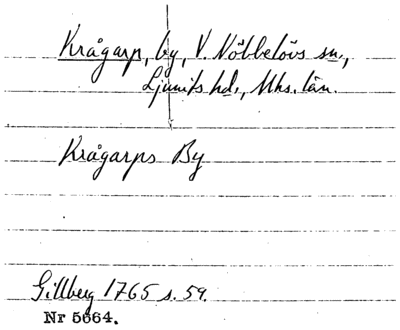 Krågarp, by, V. Nöbbelövs sn.,
Ljunits hd., Mhs. län.
Krågarps By
Gillberg 1765 s. 59.
Nr 5664.